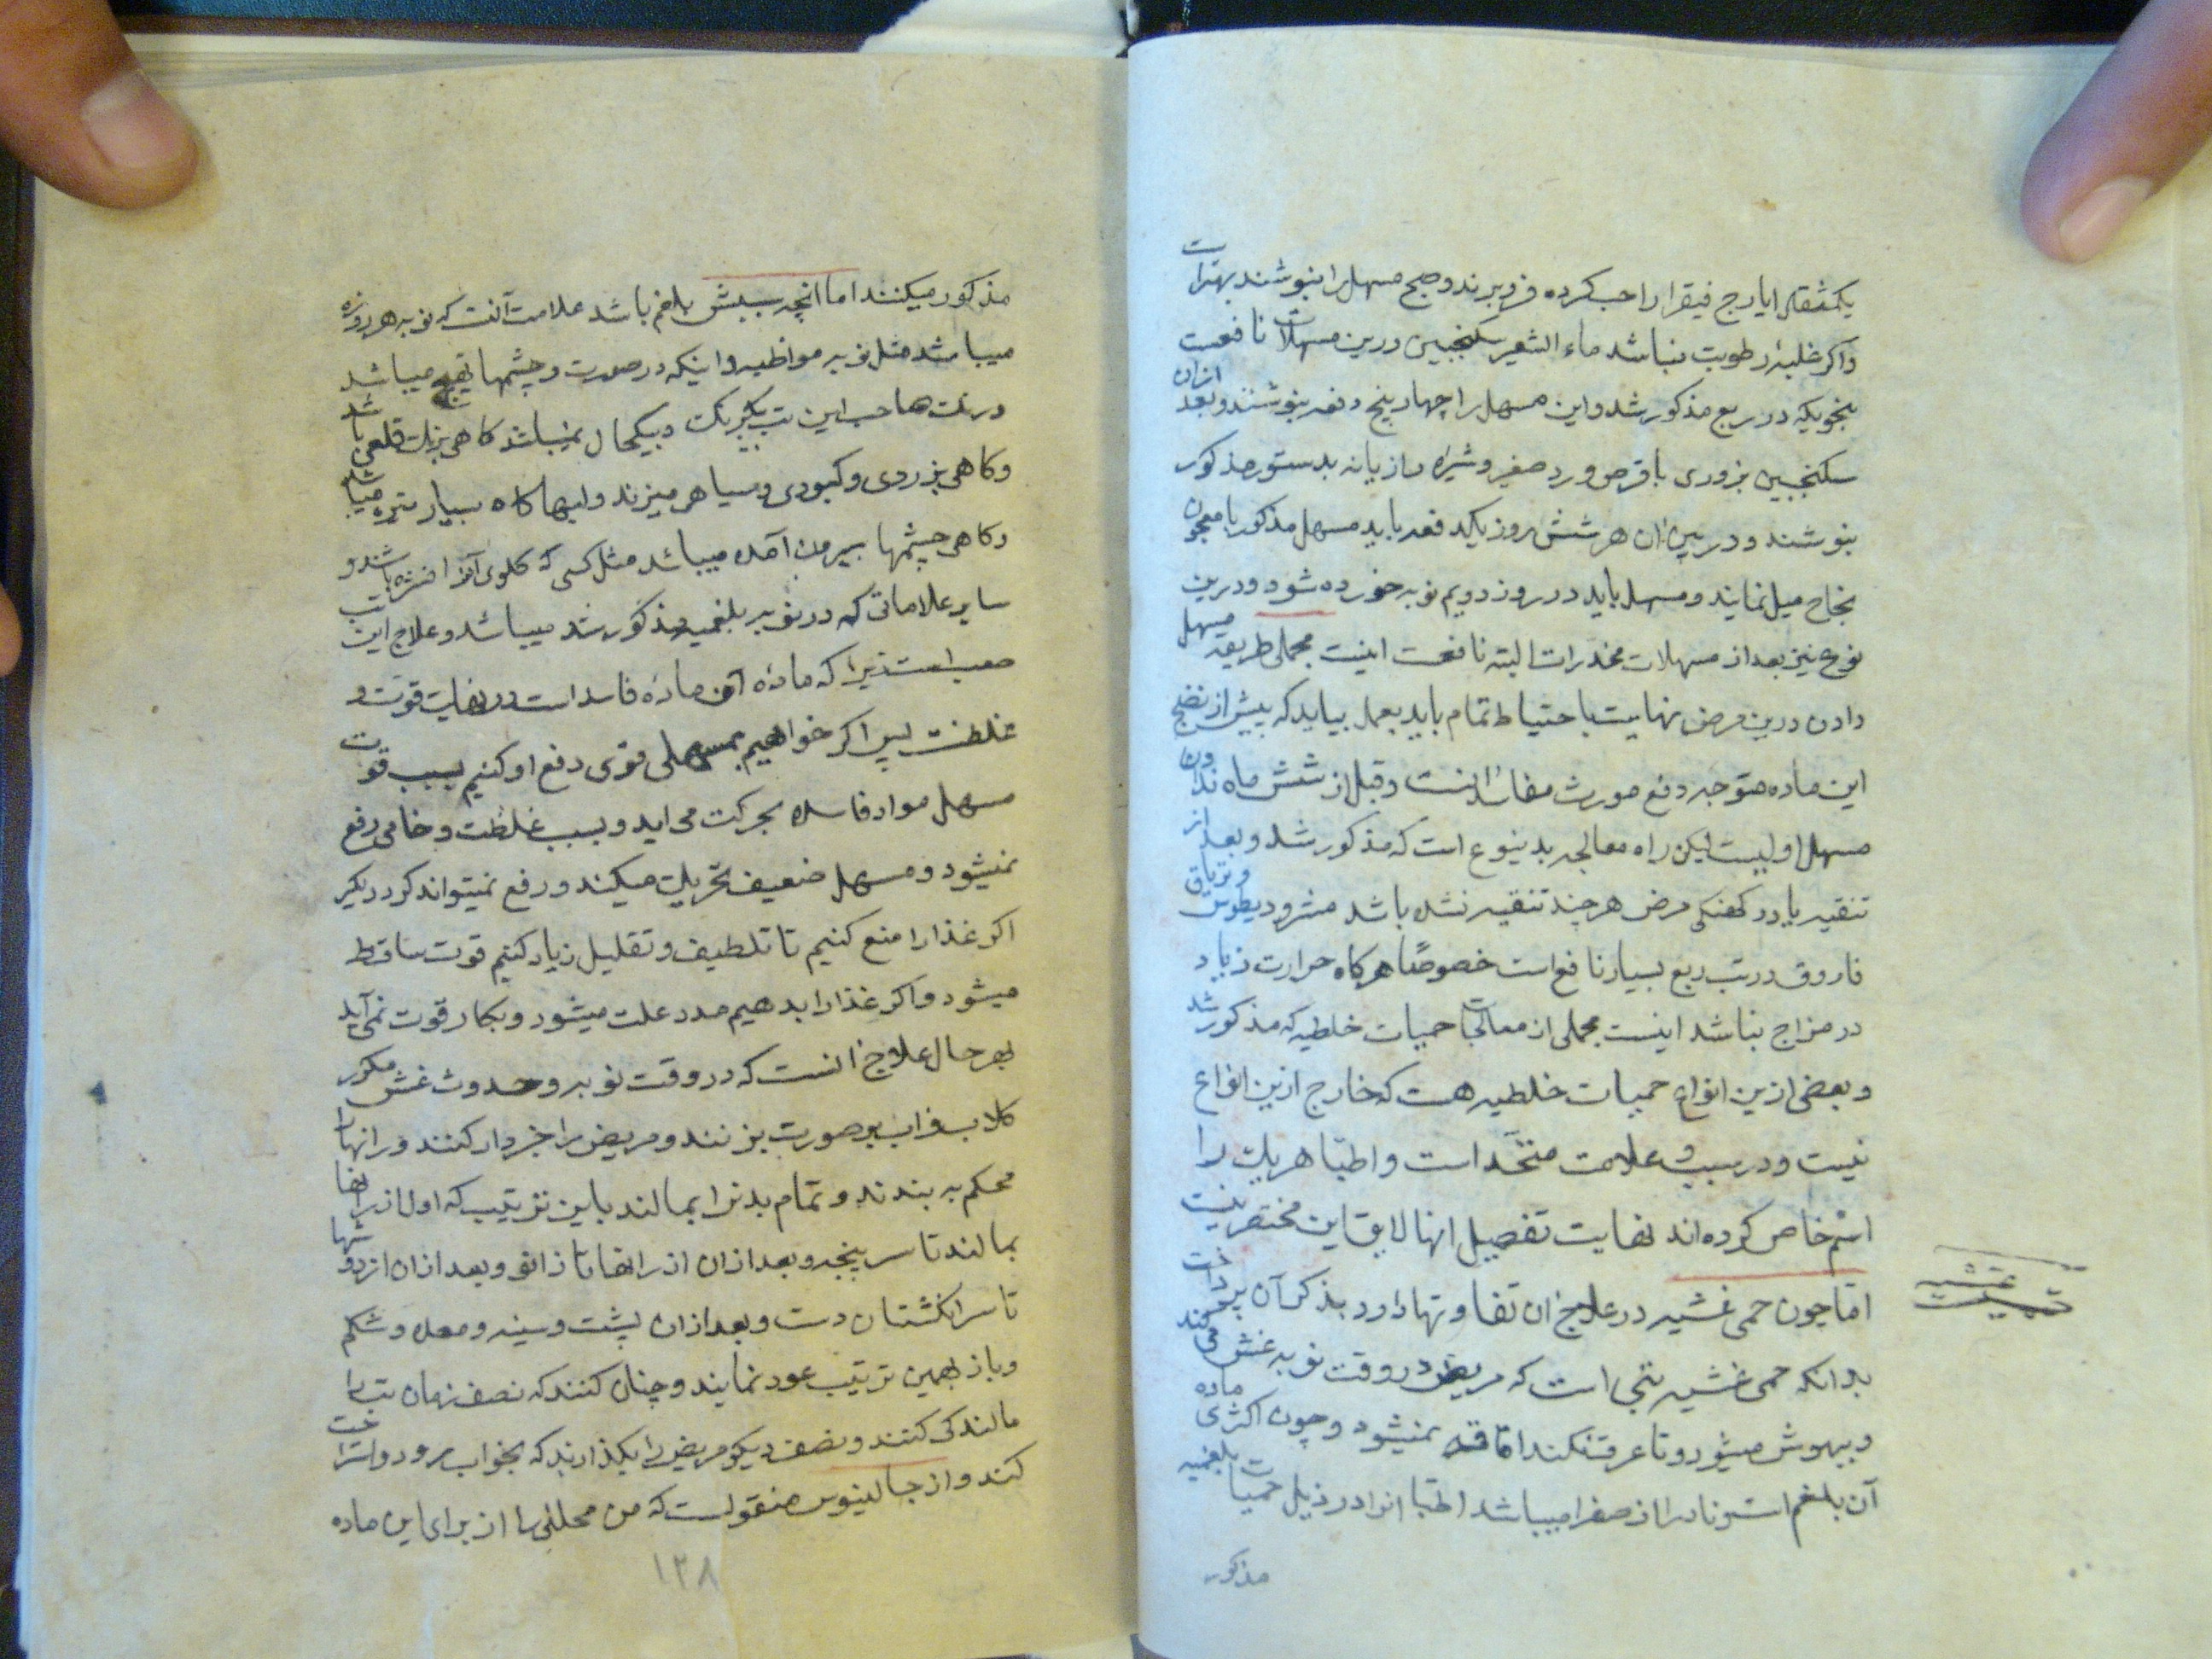 یکمثقال ایارج فیقرا را حب کرده فرو برند و صبح مسهل را بنوشند بهتر است
و اکر غلبهٔ رطوبت نباشد ماء الشعیر سکنجبین درین مسهلات نافعست
بنحویکه در ربع مذکور شد و این مسهل را چهار پنج دفعه بنوشند و بعد ازان
سکنجبین بزوری با قرص ورد صغیر و شیرهٔ رازیانه بدستور مذکور
بنوشند و در بین ان هر شش روز یکدفعه باید مسهل مذکور با معجون
نجاح میل نمایند و مسهل باید در روز دویم نوبه خورده شود و درین
نوع نیز بعد از مسهلات مخدرات البته نافعست اینست مجملی طریقه مسهل
دادن درین مرض نهایت باحتیاط تمام باید بعمل بیاید که پیش از نضج
این ماده متوجه دفع مورث مفاسد انست و قبل از شش ماه ندادن
مسهل اولیست لیکن راه معالجه بدینوع است که مذکور شد و بعد از
تنقیه یا در کهنکی مرض هر چند تنقیه نشده باشد مثرودیطوس و تریاق
فاروق در تب ربع بسیار نافع است خصوصًا هرکاه حرارت زیاد
در مزاج نباشد اینست مجملی از معالجات حمیات خلطیه که مذکور شد
و بعضی ازین انواع حمیات خلطیه هست که خارج ازین انواع
نیست و در سبب و علامت متحد است و اطبا هر یک را
اسم خاص کرده‌اند نهایت تفصیل انها لایق این مختصر نیست
اما چون حمی غشیه در علاج ان تفاوتها دارد بذکر آن پرداخت
بدانکه حمی غشیه تبی است که مریض در وقت نوبه غش میکند
و بیهوش میشود و تا عرق نکند افاقه نمیشود و چون اکثری ماده
آن بلغم است و نادرا از صفرا میباشد اطبا انرا در ذیل حمیات بلغمیه
مذکور
غشیه
مذکور میکنند اما انچه سببش بلغم باشد علامت آنست که نوبه هر روزه
میباشد مثل نوبه مواظبه و اینکه در صورت و چشمها تهیج میباشد
و رنک صاحب این تب بیکرنک و بیکحال نمیباشد کاهی برنک قلعی باشد
و کاهی بزردی و کبودی و سیاهی میزند و لبها کاه بسیار تیره میباشد
و کاهی چشمها بیرون آمده میباشد مثل کسی که کلوی آنرا فشرده باشند و
سایر علاماتی که در نوبه بلغمیه مذکور شد میباشد و علاج این تب
صعب است زیرا که ماده آن ماده فاسد است در نهایت قوت و
غلظت پس اکر خواهیم بمسهلی قوی دفع او کنیم بسبب قوت
مسهل مواد فاسده بحرکت می اید و بسبب غلظت و خامی رفع
نمیشود و مسهل ضعیف تحریک میکند و رفع نمیتواند کرد دیکر
اکر غذا را منع کنیم تا تلطیف و تقلیل زیاد کنیم قوت ساقط
میشود و اکر غذا را بدهیم مدد علت میشود و بکار قوت نمی‌آید
بهر حال علاج انست که در وقت نوبه و حدوث غش مکرر
کلاب و اب بر صورت بزنند و مریض را خبردار کنند و رانها را
محکم به بندند و تمام بدنرا بمالند باین ترتیب که اول از رانها
بمالند تا سر پنجه و بعد ازان از رانها تا زانو و بعد ازان از دوشها
تا سر انکشتان دست و بعد ازان پشت و سینه و معده و شکم
و باز بهمین ترتیب عود نمایند و چنان کنند که نصف زمان تب را
مالندکی کنند و نصف دیکر مریض را بکذارند که بخواب رود و استراحت
کند و از جالینوس منقولست که من محللی را از برای این ماده
۱۲۸